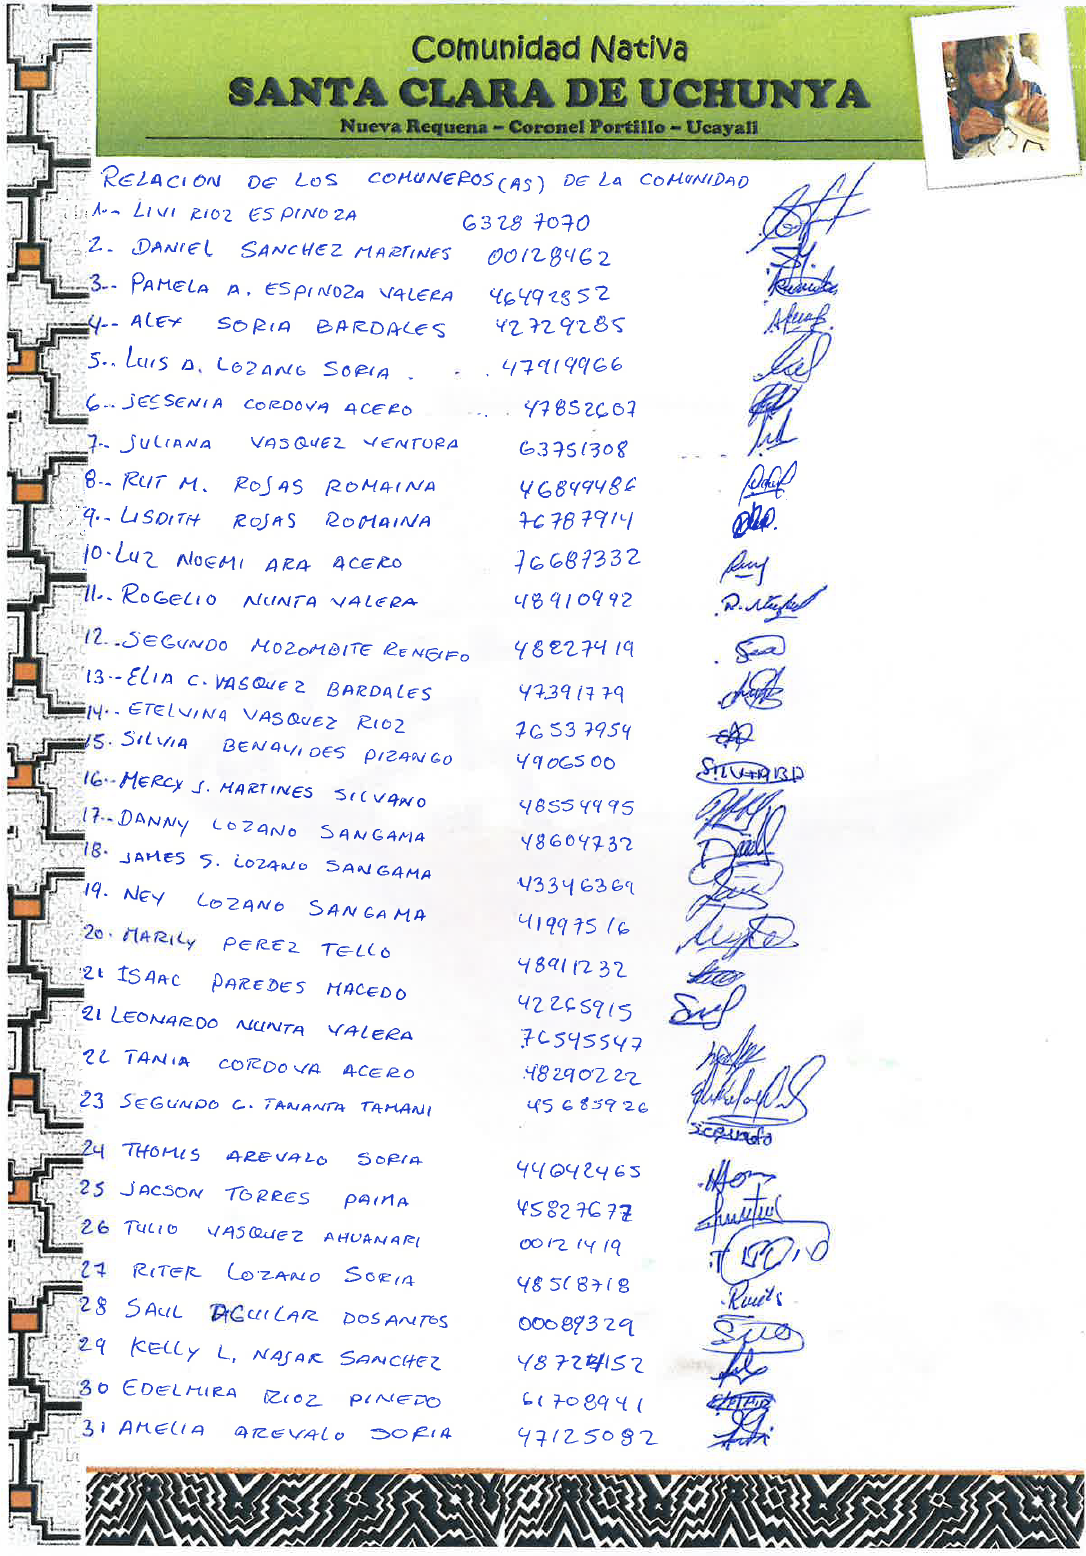 Comunidad Nativa
SANTA CLARA DE UCHUNYA
Nueva Requena – Coronel Portillo – Ucayali
RELACION DE LOS COMUNEROS(AS) DE LA COMUNIDAD
1.- LIVI RIOZ ESPINOZA 63287070
2.- DANIEL SANCHEZ MARTINES 00128462
3.- PAMELA A. ESPINOZA VALERA 46492852
4.- ALEX SORIA BARDALES 42729285
5.. LUIS A. LOZANO SORIA . - . . 47919966
6.- JESSENIA CORDOVA ACERO ... 47852607
7.- JULIANA VASQUEZ VENTURA 63751308
8.- RUT M. ROJAS ROMAINA 46849486
9.- LISDITH ROJAS ROMAINA 76787914
10.- LUZ NOEMI ARA ACERO 76687332
11.- ROGELIO NUNTA VALERA 48910992
12.- SEGUNDO MOZOMBITE RENGIFO 48227419
13.- ELIA C. VASQUEZ BARDALES 47391779
14.- ETELVINA VASQUEZ RIOZ 76537954
15. SILVIA BENAVIDES PIZANGO 4906500 SILVIA BP
16.- MERCY J. MARTINES SILVANO 48554995
17.- DANNY LOZANO SANGAMA 48604732
18. JAMES S. LOZANO SANGAMA 43346369
19. NEY LOZANO SANGAMA 41997516
20. MARILY PEREZ TELLO 48911232
21 ISAAC PAREDES MACEDO 42265915
21 LEONARDO NUNTA VALERA 76545547
22 TANIA CORDOVA ACERO 48290222
23 SEGUNDO G. TANANTA TAMANI 45685926 SEGUNDO
24 THOMIS AREVALO SORIA 44042465
25 JACSON TORRES PAIMA 45827677
26 TULIO VASQUEZ AHUANARI 00121419
27 RITER LOZANO SORIA 48518718
28 SAUL AGUILAR DOSANTOS 00089329
29 KELLY L. NAJAR SANCHEZ
30 EDELMIRA RIOZ PINEDO 61708941
31 AMELIA AREVALO SORIA 47125082